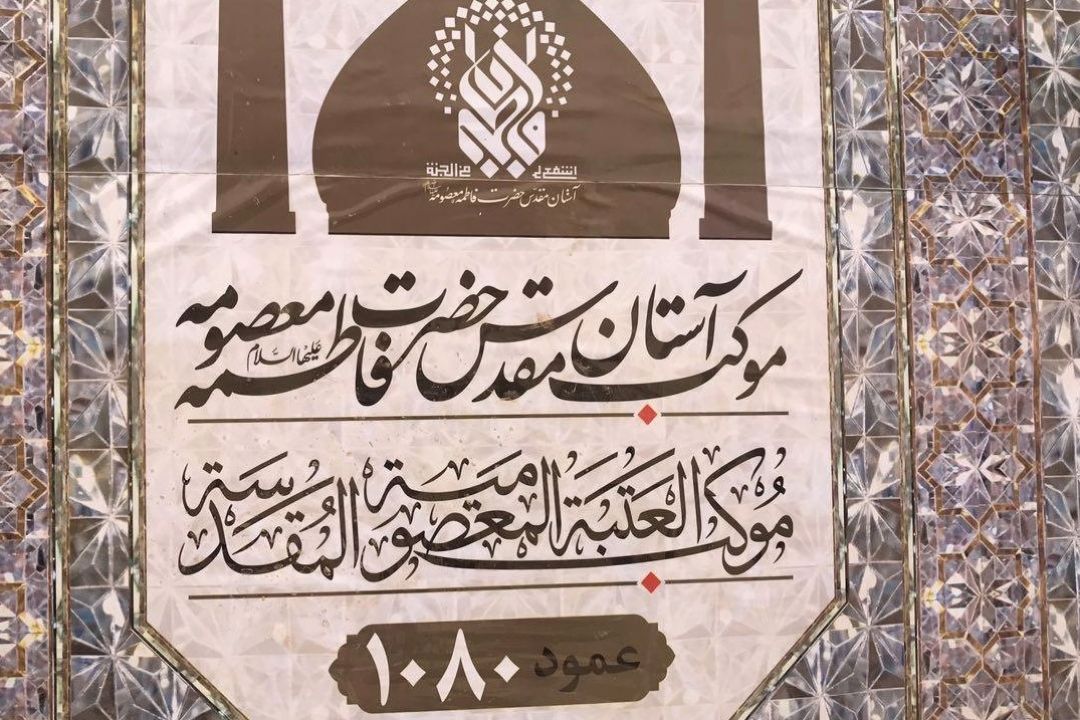 اشفعی لی فی الجنة
آستان مقدس حضرت فاطمه معصومه
موکب آستان مقدس حضرت فاطمه معصومه علیها السلام
مُوكب العَتَبَة المعصومية المُقدسة
عمود ۱۰۸۰